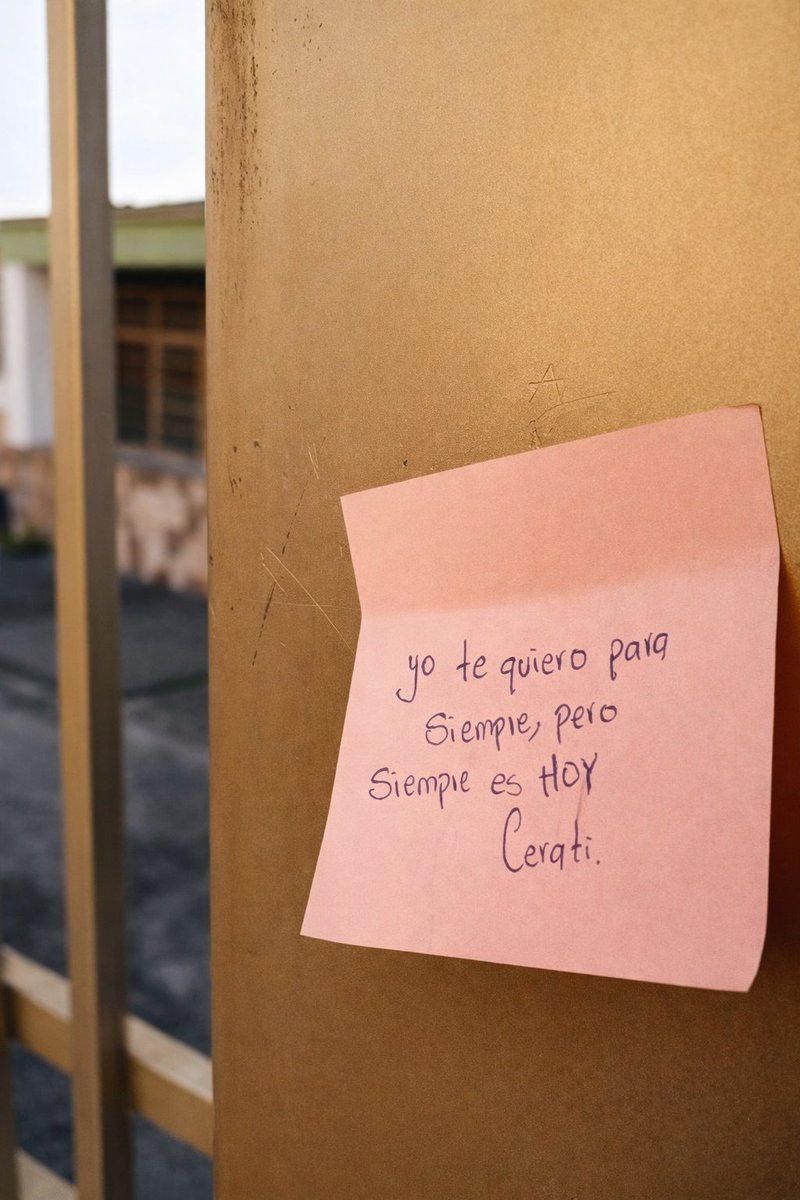 yo te quiero para
Siempre, pero
Siempre es HOY
Cerati.